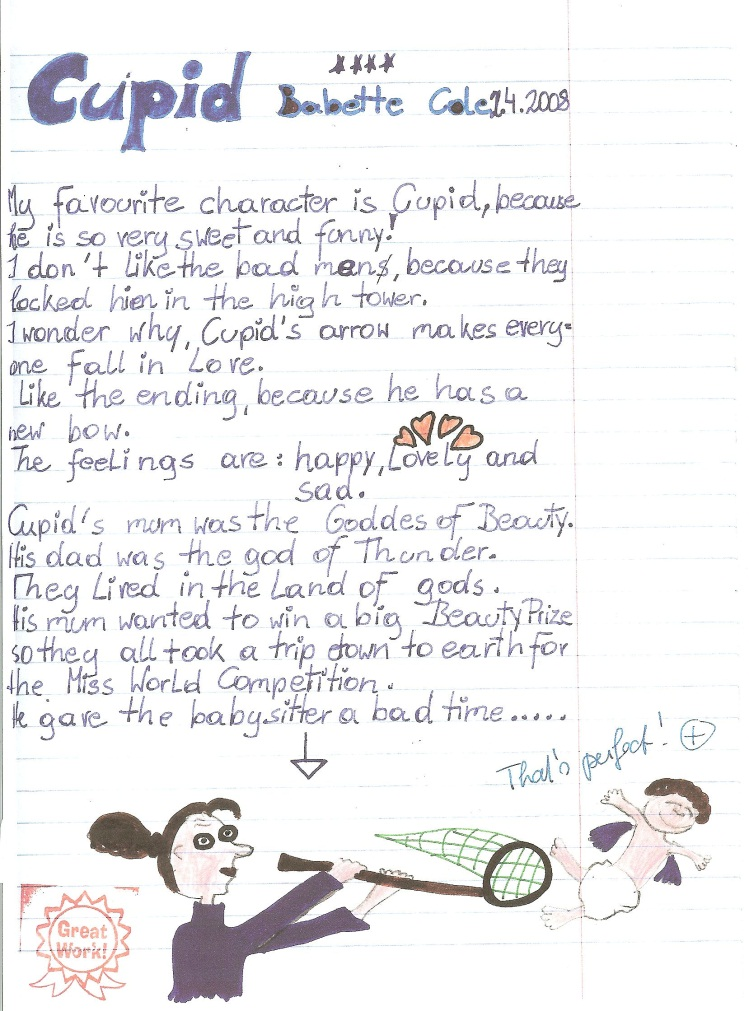 Cupid
****
Babette Cole, 14.2008
My favourite character is Cupid, because
he is so very sweet and funny!
I don't like the bad mens, because they
locked him in the high tower.
I wonder why, Cupid's arrow makes every=
one fall in Love.
Like the ending, because he has a
new bow.
The feelings are: happy, Lovely and
sad.
Cupid's mum was the Goddes of Beauty.
His dad was the god of Thunder.
They Lived in the Land of gods.
His mum wanted to win a big Beauty Prize
so they all took a trip down to earth for
the Miss World Competition.
He gave the babysitter a bad time.....
That's perfect! +
Great
Work!